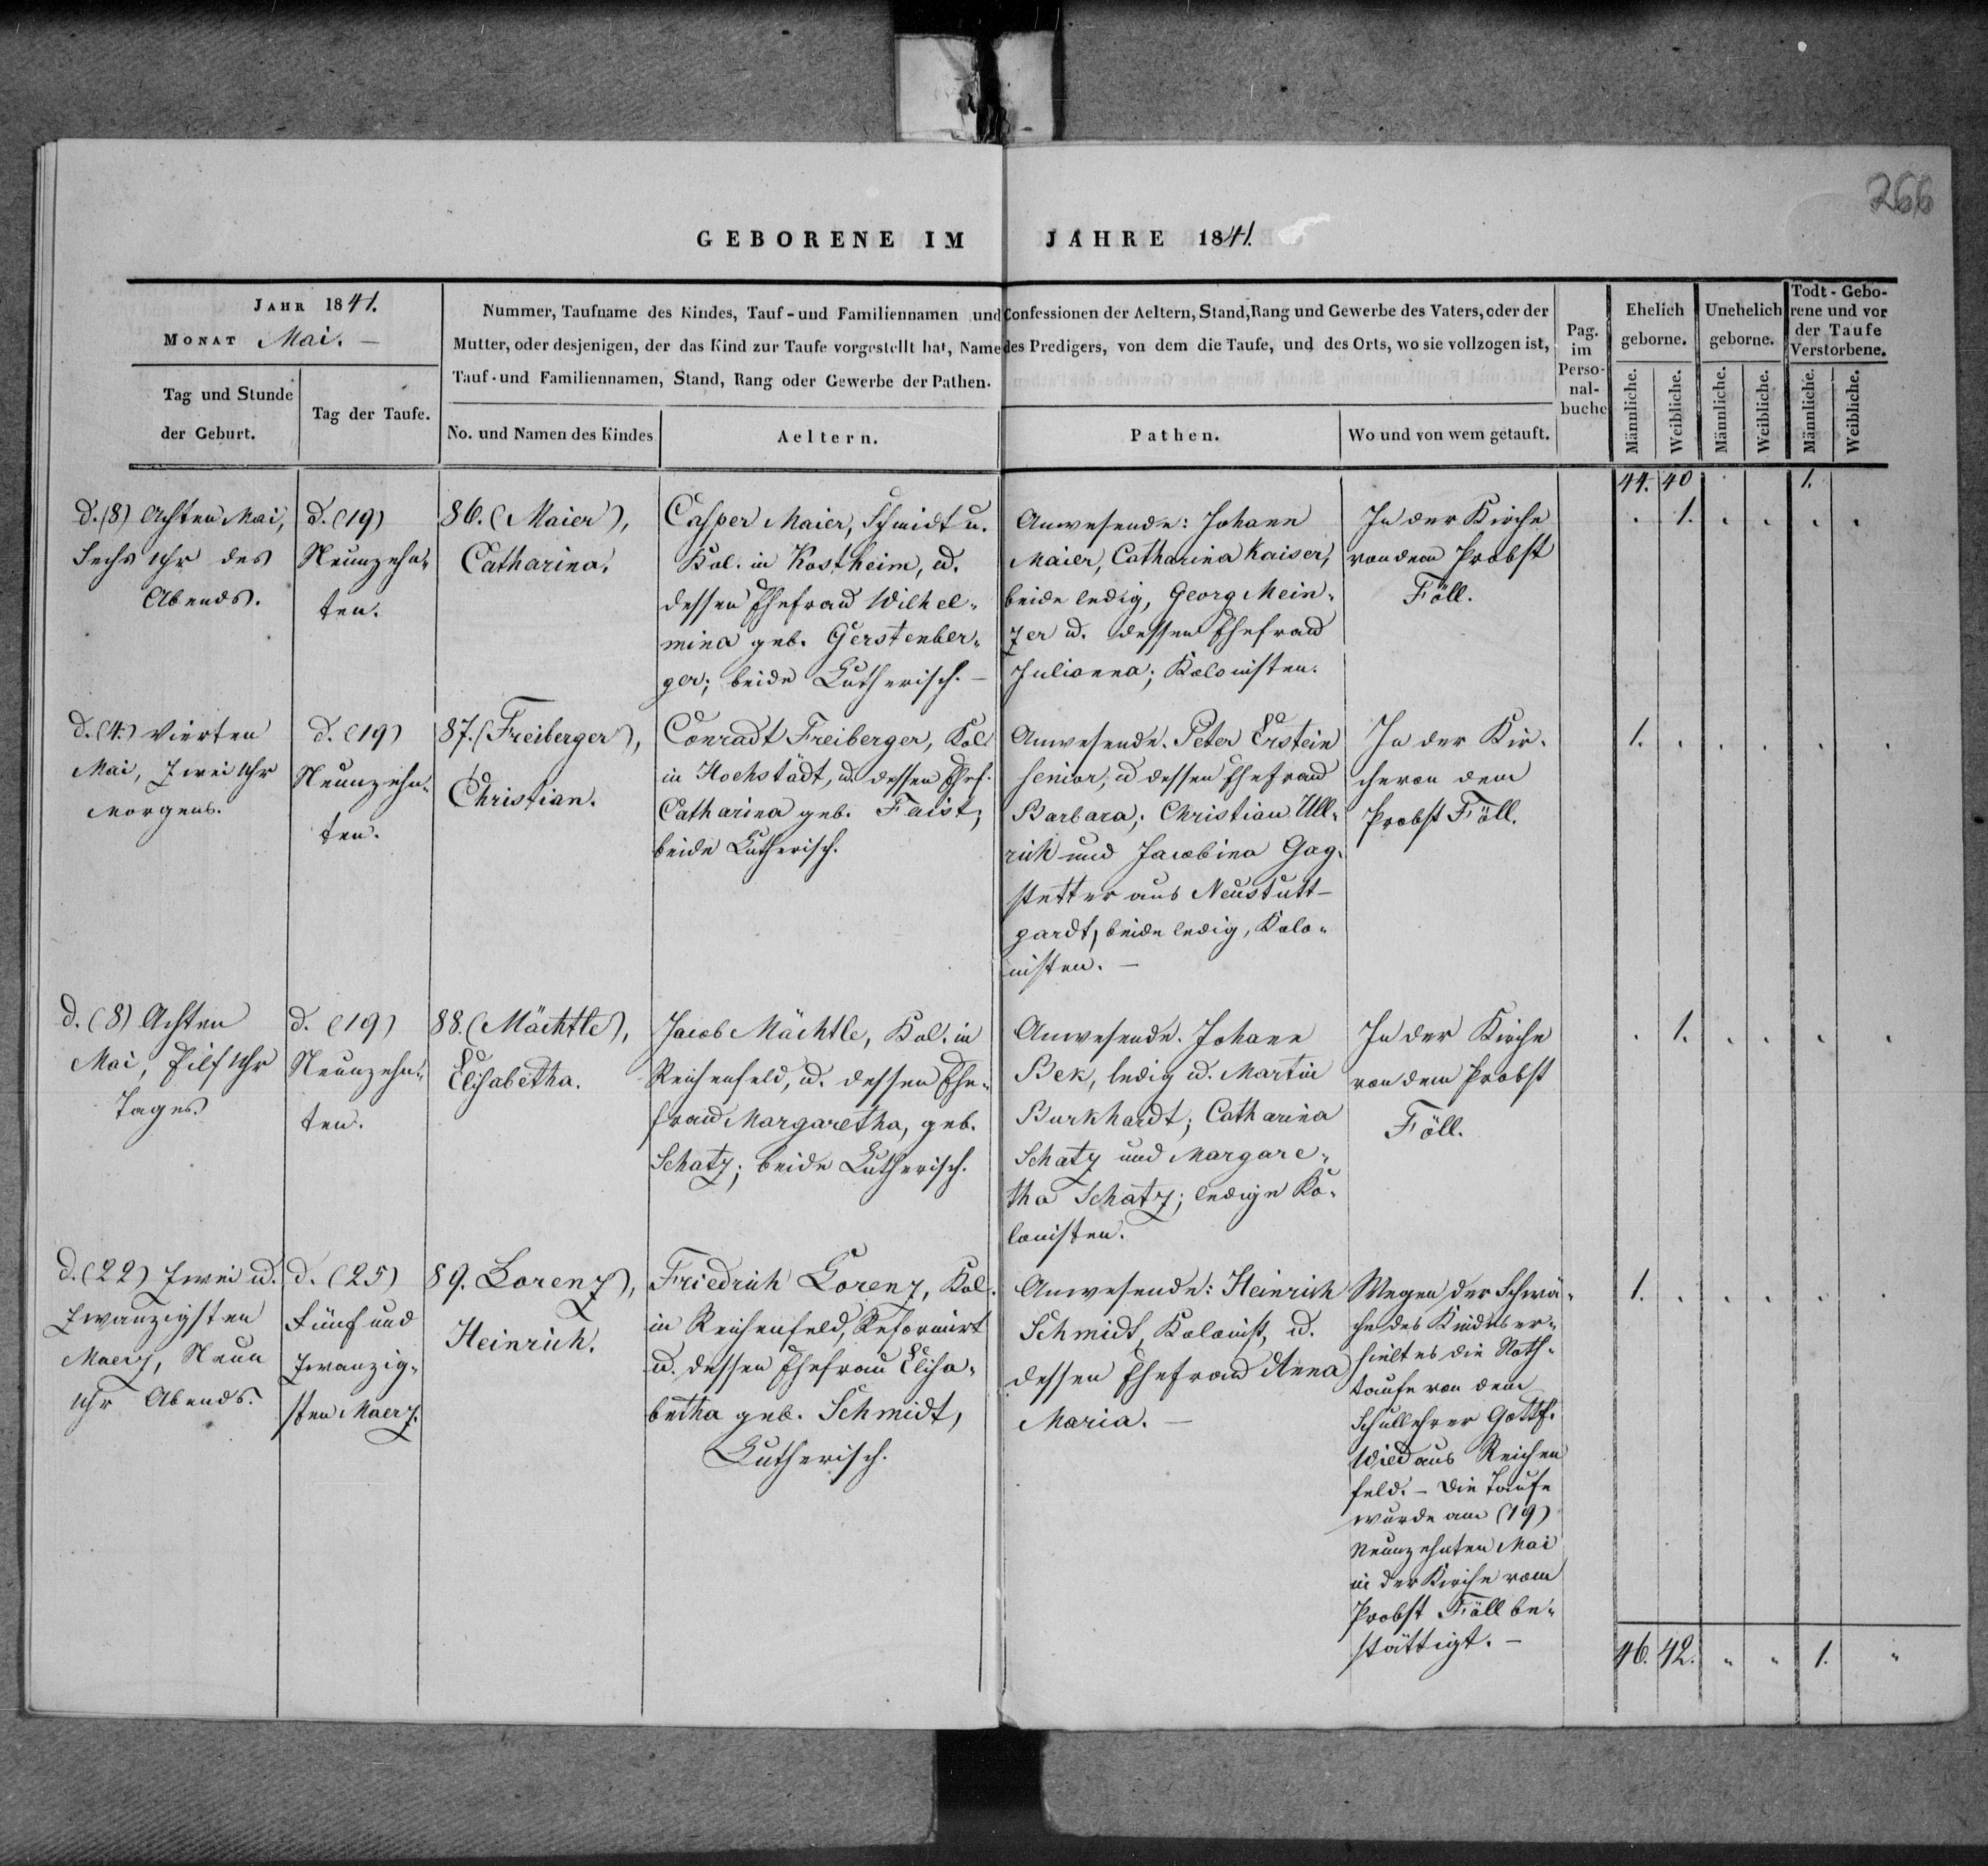 266
GEBORENE IM JAHRE 1841.
JAHR 1841.
MONAT Mai. –
Tag und Stunde
der Geburt.
Tag der Taufe.
Nummer, Taufname des Kindes, Tauf- und Familiennamen und Confessionen der Aeltern, Stand, Rang und Gewerbe des Vaters, oder der
Mutter, oder desjenigen, der das Kind zur Taufe vorgestellt hat, Name des Predigers, von dem die Taufe, und des Orts, wo sie vollzogen ist,
Tauf- und Familiennamen, Stand, Rang oder Gewerbe der Pathen.
No. und Namen des Kindes
Aeltern.
Pathen.
Wo und von wem getauft.
Pag.
im
Perso-
nal-
buche
Ehelich
geborne.
Unehelich
geborne.
Todt-Gebo-
rene und vor
der Taufe
Verstorbene.
Männliche.
Weibliche.
Männliche.
Weibliche.
Männliche.
Weibliche.
44. 40 1.
d. (8) Achten Mai,
Sechs Uhr des
Abends.
d. (19)
Neunzehn-
ten.
86. (Maier),
Catharina.
Casper Maier, Schmidt u.
Kol. in Kostheim, u.
dessen Ehefrau Wilhel-
mina geb. Gerstenber-
ger; beide Lutherisch. –
Anwesende: Johann
Maier, Catharina Kaiser,
beide ledig, Georg Mein-
zer u. dessen Ehefrau
Julianna; Kolonisten.
In der Kirche
von dem Probst
Föll.
. 1. . . . .
d. (4.) Vierten
Mai, Zwei Uhr
Morgens.
d. (19)
Neunzehn-
ten.
87. (Freiberger),
Christian.
Conradt Freiberger, Kol.
in Hochstädt, u. dessen Ehef.
Catharina geb. Faist;
beide Lutherisch.
Anwesende. Peter Erstein
senior, u dessen Ehefrau
Barbara; Christian Ull-
rich und Jacobina Gag-
stetter aus Neustutt-
gardt, beide ledig, Kolo-
nisten. –
In der Kir-
che von dem
Probst Föll.
1. . . . . .
d. (8) Achten
Mai, Eilf Uhr
Tages.
d. (19)
Neunzehn-
ten.
88. (Mächtle),
Elisabetha.
Jacob Mächtle, Kol. in
Reichenfeld, u. dessen Ehe-
frau Margaretha, geb.
Schatz; beide Lutherisch.
Anwesende. Johann
Bek, ledig u. Martin
Burkhardt; Catharina
Schatz und Margare-
tha Schatz; ledige Ko-
lonisten.
In der Kirche
von dem Probst
Föll.
. 1. . . . .
d. (22) Zwei u.
Zwanzigsten
Maerz, Neun
Uhr Abends.
d. (25)
Fünf und
Zwanzig-
sten Maerz.
89. Lorenz),
Heinrich.
Friedrich Lorenz, Kol.
in Reichenfeld, Reformirt
u. dessen Ehefrau Elisa-
betha geb. Schmidt,
Lutherisch.
Anwesende: Heinrich
Schmidt, Kolonist, u.
dessen Ehefrau Anna
Maria. –
Wegen der Schwä-
che des Kindes er-
hielt es die Noth-
taufe von dem
Schullehrer Gottf.
Wied aus Reichen
feld. – Die Taufe
wurde am (19)
Neunzehnten Mai
in der Kirche vom
Probst Föll be-
stättigt. –
1. . . . . .
46. 42. " " 1. "